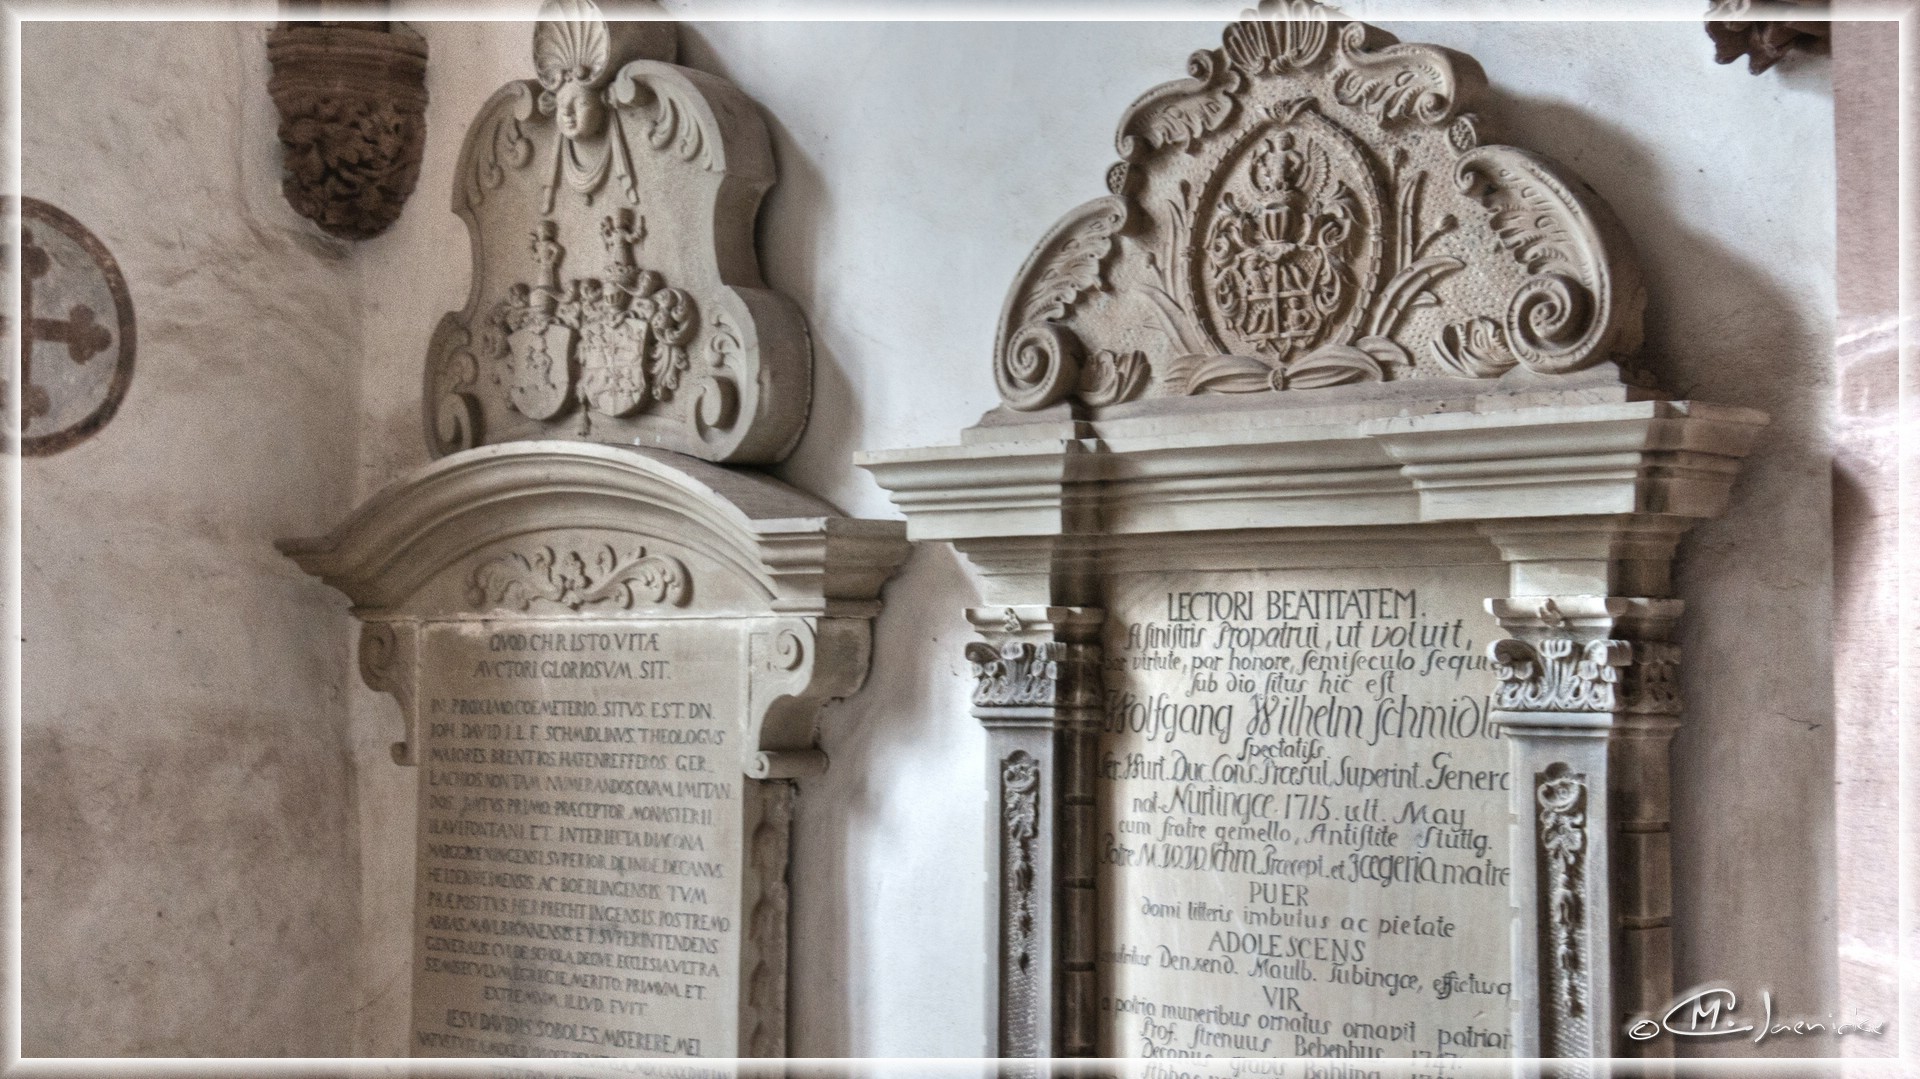 QVOD CHRISTO VITÆ
AVCTORI GLORIOSVM SIT.
IN PROXIMO COEMETERIO SITVS EST DN.
IOH. DAVID I. L. F. SCHMIDLINVS THEOLOGVS
MAIORES BRENTIOS HAFENREFFEROS GER
LACHIOS NON TAM NUMERANDOS QVAM IMITAN
DOS IMITVS PRIMO PRÆCEPTOR MONASTERII
BLAVIFONTANI ET INTERIECTA DIACONA
SVPERIOR DEINDE DECANVS
HEIDENHEIMENSIS AC BOEBLINGENSIS TVM
PRÆPOSITVS HERPRECHTINGENSIS POSTREMO
ABBAS MAVLBRONNENSIS ET SVPERINTENDENS
GENERALIS CVI DE SCHOLA DEQVE ECCLESIA VLTRA
SEMISECVLVM EGREGIE MERITO PRIMVM ET
EXTREMVM ILLVD FVIT
IESV DAVIDIS SOBOLES MISERERE MEI
LECTORI BEATITATEM.
A sinistris Propatrui, ut voluit,
par virtute, par honore, semiseculo sequi
sub dio situs hic est
Wolfgang Wilhelm Schmidlin
spectatiss.
Ser. Wurt. Duc. Cons. Præsul. Superint. Genera
nat. Nürtingæ. 1715. ult. May
cum fratre gemello, Antistite Stuttg.
Patre M. W. W. Schm. Præcept. et Jægeria matre
PUER
domi litteris imbutus ac pietate
ADOLESCENS
Denkend. Maulb. Tubingæ, effictusq
VIR
a patria muneribus ornatus ornavit patriam
Prof. strenuus Bebenhus. 1747.
Decanus gravis Böbling.
© M. Jaenicke